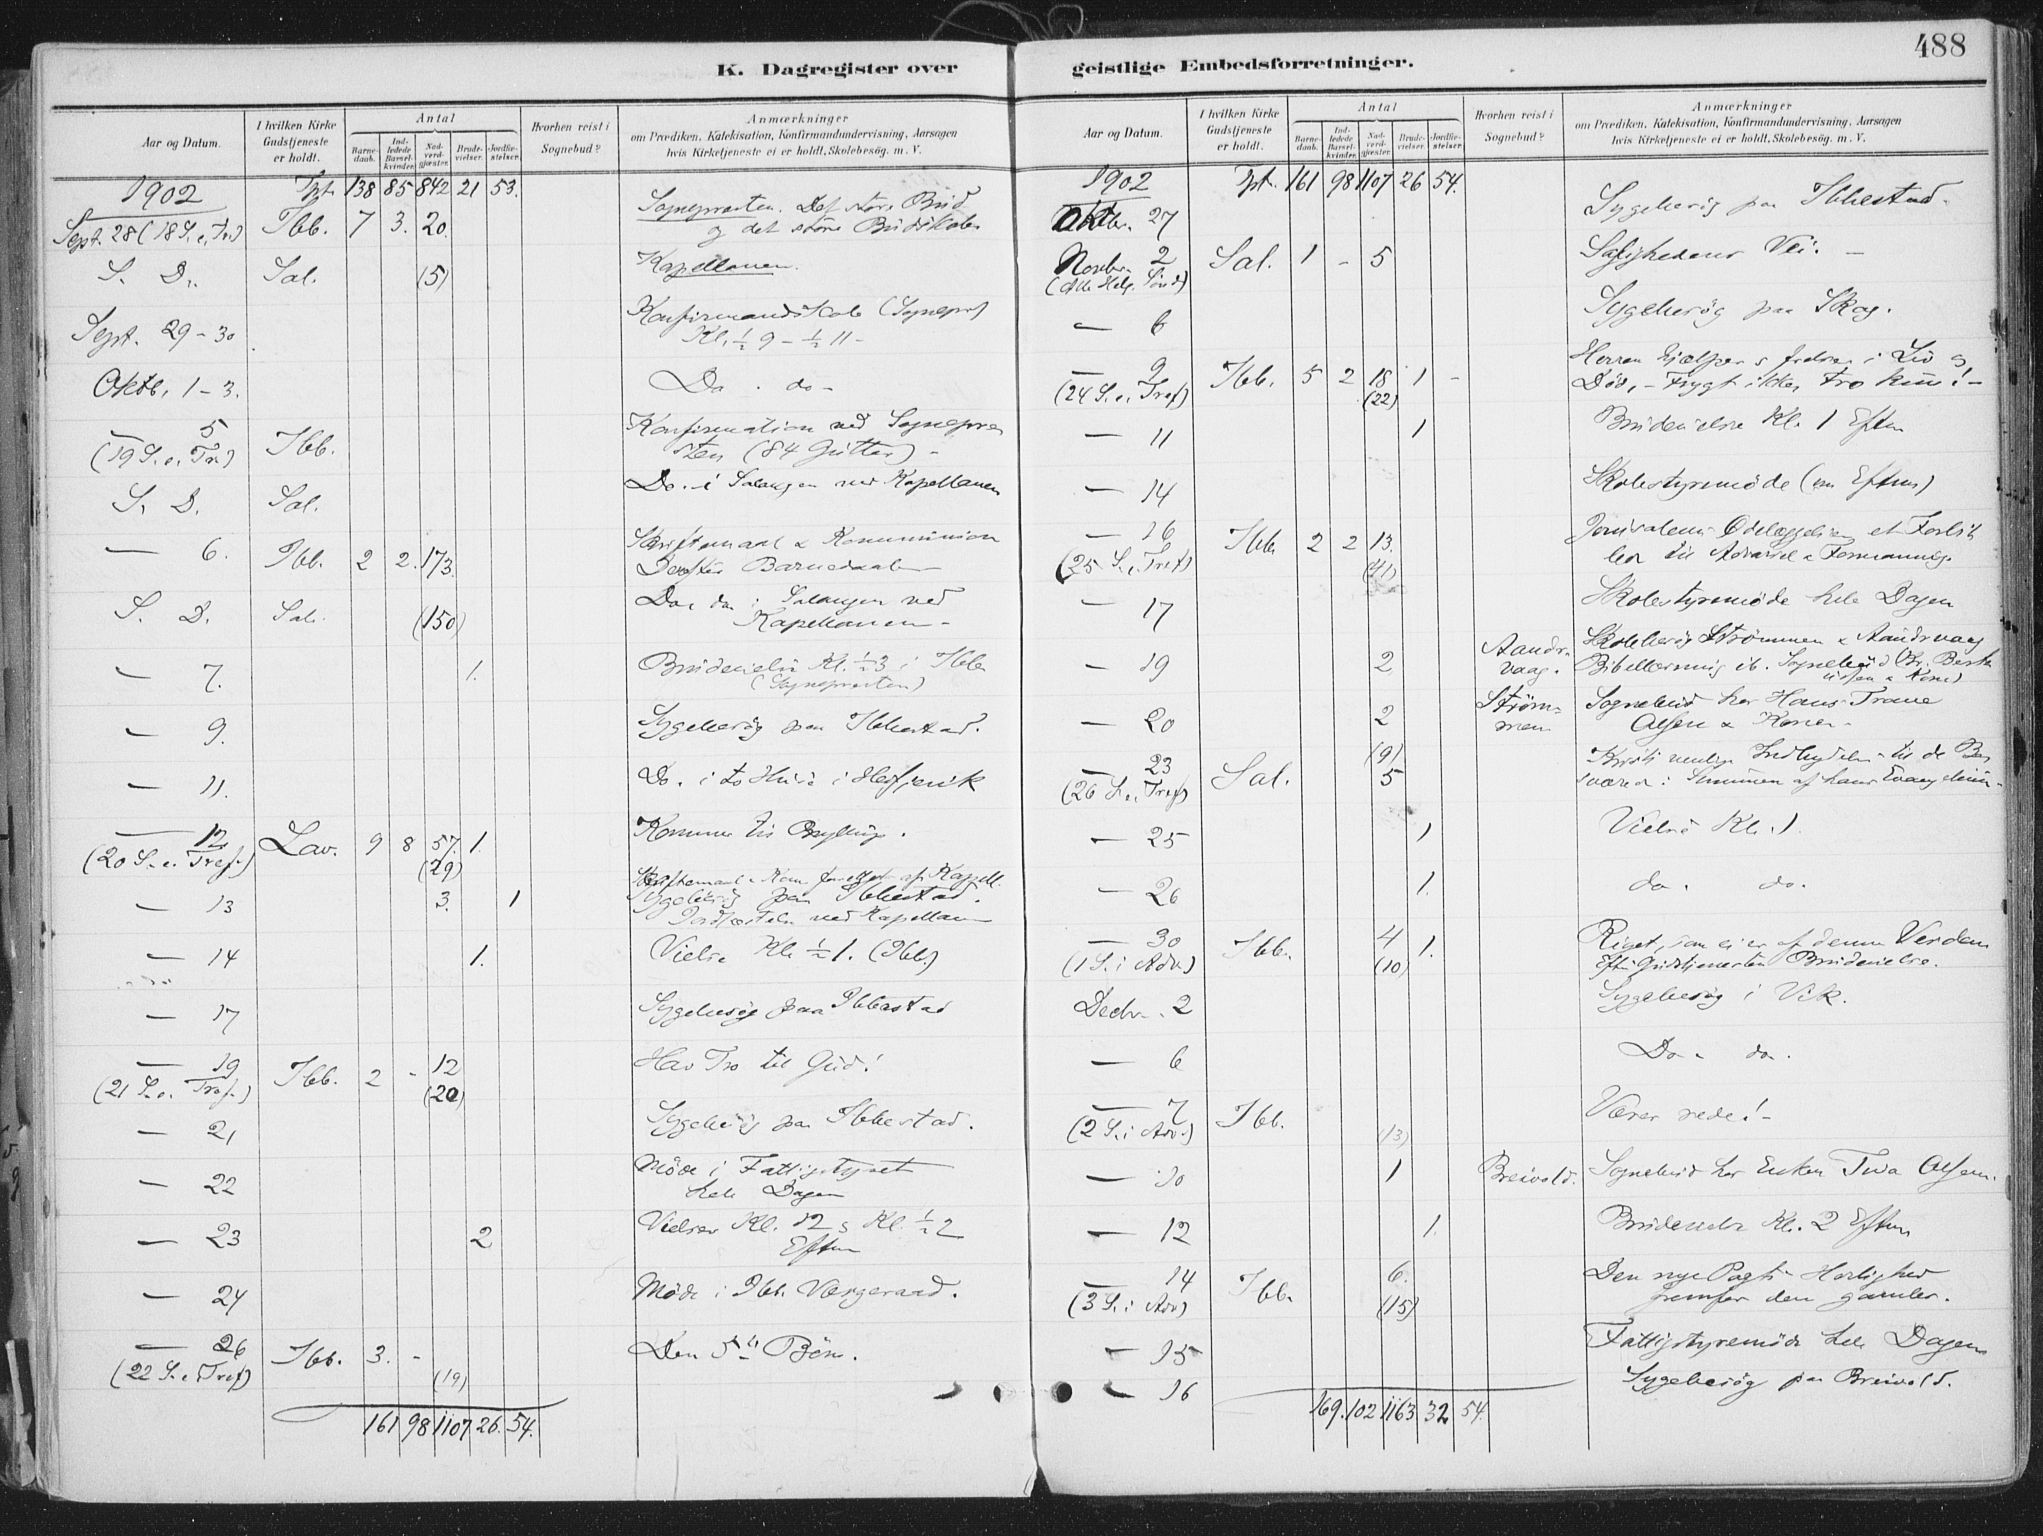 488
K. Dagregister over
geistlige Embedsforretninger.
Aar og Datum.
I hvilken Kirke Gudstjeneste er holdt.
Antal
Barnedaab.
Indledede Barselkvinder.
Nadverdgjæster.
Brudevielser.
Jordfæstelser.
Hvorhen reist i Sognebud?
Anmærkninger
om Prædiken, Katekisation, Konfirmandundervisning, Aarsagen
hvis Kirketjeneste ei er holdt, Skolebesøg. m. V.
1902 Tpt. 138 85 842 21 53.
Sept. 28 (18 S. e. Tr.) Ibb. 7 3. 20. Sognepræsten. Det store Bud
og det større Budskab
S. D. Sal. (5) Kapellanen.
Sept. 29-30 Konfirmandskole (Sognepr)
Kl. ½ 9 - ½ 11 -
Oktb. 1-3. Do. do-
— 5
(19 S. e. Tr.) Ibb. Konfirmation ved Sognepræ
sten (84 Gutter) -
S. D. Sal. Do. i Salangen ved Kapellanen
— 6. Ibb. 2 2. 173. Skriftemaal & Kommunion
Derefter Barnedaab
S. D. Sal. (150) Do. do. i Salangen ved
Kapellanen -
— 7. 1. Brudevielse Kl. ½ 3 i Ibb.
(Sognepræsten)
— 9. Sygebesøg paa Ibbestad.
— 11. Do. i to Huse i
— 12
(20 S. e. Tref.) Lav. 9 8 57. 1. Komme til
(29)
— 13 3. 1 Skriftemaal & Kom. af Kapell.
Sygebesøg paa Ibbestad.
Jordfæstelse ved Kapellanen
— 14 1. Vielse Kl. ½ 1. (Ibb.)
— 17 Sygebesøg paa Ibbestad
— 19
(21 S. e. Tref.) Ibb. 2 - 12 Hav Tro til Gud!
(20)
— 21 Sygebesøg paa Ibbestad.
— 22 Møde i Fattigstyret
hele Dagen
— 23 2 Vielser Kl. 12 & Kl. ½ 2
Eftm
— 24 Møde i Ibb. Værgeraad.
— 26
(22 S. e. Tref) Ibb. 3. - Den 5te Bøn.
(19)
161 98 1107 26. 54.
Aar og Datum.
I hvilken Kirke Gudstjeneste er holdt.
Antal
Barnedaab.
Indledede Barselkvinder.
Nadverdgjæster.
Brudevielser.
Jordfæstelser.
Hvorhen reist i Sognebud?
Anmærkninger
om Prædiken, Katekisation, Konfirmandundervisning, Aarsagen
hvis Kirketjeneste ei er holdt, Skolebesøg. m. V.
1902 Tpt. 161 98 1107 26 54.
Oktbr. 27 Sygebesøg paa Ibbestad.
Novbr. 2 Sal. 1 - 5 Salighedens Vei. -
(Alle Helg. Sønd)
— 6 Sygebesøg paa Skog.
— 9
(24 S. e. Tref) Ibb. 5 2 18 1 - Herren hjælper & frelser i Liv og
(22) Død, - Frygt ikke, tro kun! -
— 11 1 Brudevielse Kl. 1 Eftm
— 14 Skolestyremøde (om Eftm)
— 16
(25 S. e. Tref) Ibb. 2 2 13. Jerusalems Ødelæggelse
(41) til Advarsel & Formaning.
— 17 Skolestyremøde hele Dagen
— 19 2 Aandr-
vaag. Skolebesøg Strømmen & Aandrvaag
Bibellæsning ib. Sognebud
— 20 2 Strøm-
men Sognebud hos Hans Trane
Olsen & Kone. -
— 23
(26 S. e. Tref) Sal. (9)
5 Kristi venlige Indbydelse til de Be
sværede i Summen af hans Evangelium -
— 25 1 Vielse Kl. 1.
— 26 1. do. do.
— 30
(1 S. i Adv.) Ibb. 4 1. Riget, som ei er af denne Verden
(10) Efter Gudstjenesten Brudevielse.
Decbr. 2 Sygebesøg i Vik.
— 6 Do. do.
— 7
(2 S. i Adv.) Ibb. (13) Værer rede! -
— 10 1 Breivold. Sognebud hos Enken Olsen.
— 12 1. Brudevielse Kl. 2 Eftm
— 14
(3 S. i Adv) Ibb. 6. Den nye Pagts Herlighed
(15) fremfor den gamles.
— 15 Fattigstyremøde hele Dagen
— 16 Sygebesøg paa Breivold.
169. 102 1163 32 54.